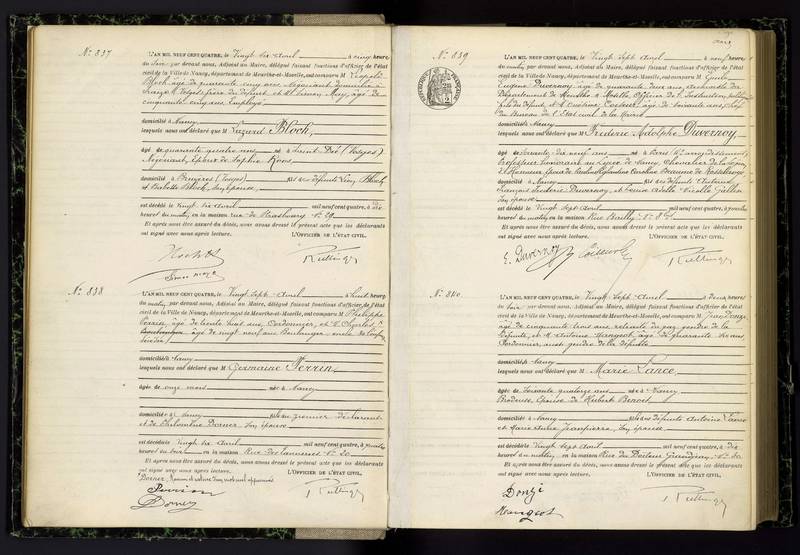 N° 837
L'AN MIL NEUF CENT QUATRE, le Vingt six Avril à cinq heures
du Soir par devant nous, Adjoint au Maire, délégué faisant fonctions d'officier de l'état
civil de la Ville de Nancy, département de Meurthe-et-Moselle, ont comparu M Léopold
Bloch âgé de quarante cinq ans Négociant, domicilié à
du défunt et M Simon May, âgé de
cinquante cinq ans Employé
domicilié à Nancy
lesquels nous ont déclaré que M Lazard Bloch,
âgé de quarante quatre ans né à Saint-Dié (Vosges)
Négociant, Époux de Sophie Roos
domicilié à Bruyères (Vosges) fils de défunts Bloch
et Babette Bloch, son épouse
est décédé le Vingt six Avril mil neuf cent quatre, à dix
heures du matin en la maison rue de Strasbourg N° 29
Et après nous être assuré du décès, nous avons dressé le présent acte que les déclarants
ont signé avec nous après lecture. L'OFFICIER DE L'ÉTAT CIVIL,
N° 838
L'AN MIL NEUF CENT QUATRE, le Vingt Sept Avril à huit heures
du matin, par devant nous, Adjoint au Maire, délégué faisant fonctions d'officier de l'état
civil de la Ville de Nancy, département de Meurthe-et-Moselle, ont comparu M Philippe
Perrin, âgé de trente huit ans, Cordonnier, et
âgé de vingt neuf ans Boulanger oncle de l'enfant
domiciliés à Nancy
lesquels nous ont déclaré que M Germaine Perrin,
âgée de onze mois née à Nancy
domiciliée à Nancy fille du premier déclarant
et de Philomène Dorner, son épouse
est décédée le Vingt six Avril mil neuf cent quatre, à quatre
heures du soir en la maison Rue des Tanneries N° 30
Et après nous être assuré du décès, nous avons dressé le présent acte que les déclarants
ont signé avec nous après lecture. L'OFFICIER DE L'ÉTAT CIVIL,
Perrin
Dorner
N° 839
L'AN MIL NEUF CENT QUATRE, le Vingt Sept Avril à neuf heures
du matin par devant nous, Adjoint au Maire, délégué faisant fonctions d'officier de l'état
civil de la Ville de Nancy, département de Meurthe-et-Moselle, ont comparu M
Eugène Duvernoy, âgé de quarante deux ans, Archiviste du
Département de Meurthe & Moselle, Officier de l'Instruction publique
fils du défunt, et M âgé de soixante ans, Chef
du Bureau de l'État civil de la Mairie
domiciliés à Nancy
lesquels nous ont déclaré que M Frédéric Adolphe Duvernoy,
âgé de soixante dix neuf ans né à Paris
Professeur honoraire au Lycée de Nancy, Chevalier de la Légion
d'Honneur, époux de
domicilié à Nancy fils de défunts
François Frédéric Duvernoy, et Louise Adèle
son épouse
est décédé le Vingt Sept Avril mil neuf cent quatre, à quatre
heures du matin, en la maison Rue
Et après nous être assuré du décès, nous avons dressé le présent acte que les déclarants
ont signé avec nous après lecture. L'OFFICIER DE L'ÉTAT CIVIL,
E. Duvernoy
N° 840
L'AN MIL NEUF CENT QUATRE, le Vingt Sept Avril à deux heures
du soir par devant nous, Adjoint au Maire, délégué faisant fonctions d'officier de l'état
civil de la Ville de Nancy, département de Meurthe-et-Moselle, ont comparu M Jean Donzé
âgé de cinquante trois ans retraité du gaz, gendre de la
défunte, et M Antoine Mangeot, âgé de quarante six ans
Cordonnier, aussi gendre de la défunte
domiciliés à Nancy
lesquels nous ont déclaré que M Marie Lance,
âgée de soixante quatorze ans née à Nancy
Brodeuse, Épouse de Hubert Benoit
domiciliée à Nancy fille de défunts Antoine Lance
et Marie Anne Jeanpierre, son épouse
est décédée le Vingt sept Avril mil neuf cent quatre, à dix
heures du matin, en la maison Rue du Docteur Grandjean, N° 30
Et après nous être assuré du décès, nous avons dressé le présent acte que les déclarants
ont signé avec nous après lecture. L'OFFICIER DE L'ÉTAT CIVIL,
Donzé
Mangeot